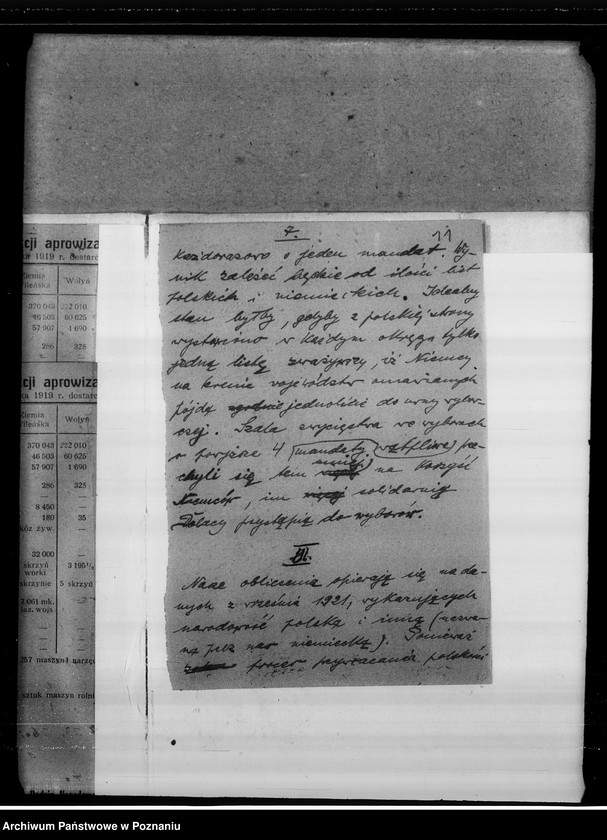 cji aprowiza
ku 1919 r. dostarc
Ziemia Wileńska
Wołyń
370 043 222 010
46 503 60 625
57 907 1 690
286 325
cji aprowiza
ku 1919 r. dostarc
Ziemia Wileńska
Wołyń
370 043 222 010
46 503 60 625
57 907 1 690
286 325
8 450 —
180 35
32 000 —
skrzyń worki
skrzynie 5 skrzyń
257 maszyn i narzęd
sztuk maszyn rolni
7.
11
każdorazowo o jeden mandat. Wy-
nik zależeć będzie od ilości list
polskich i niemieckich. Idealny
stan byłby, gdyby z polskiej strony
wystawiono w każdym okręgu tylko
jedną listę zważywszy, iż Niemcy
na terenie województw omawianych
pójdą jednolicie do urny wybor-
czej. Szala zwycięstwa we wyborach
o powyższe 4 (mandaty wątpliwe) prze-
chyli się tem mniej na korzyść
Niemców, im solidarniej
Polacy przystąpią do wyborów.
III.
Nasze obliczenia opierają się na da-
nych z września 1921, wykazujących
narodowość polską i inną (nazwa-
ną przez nas niemiecką). Ponieważ
proces przywracania polskości
Archiwum Państwowe w Poznaniu